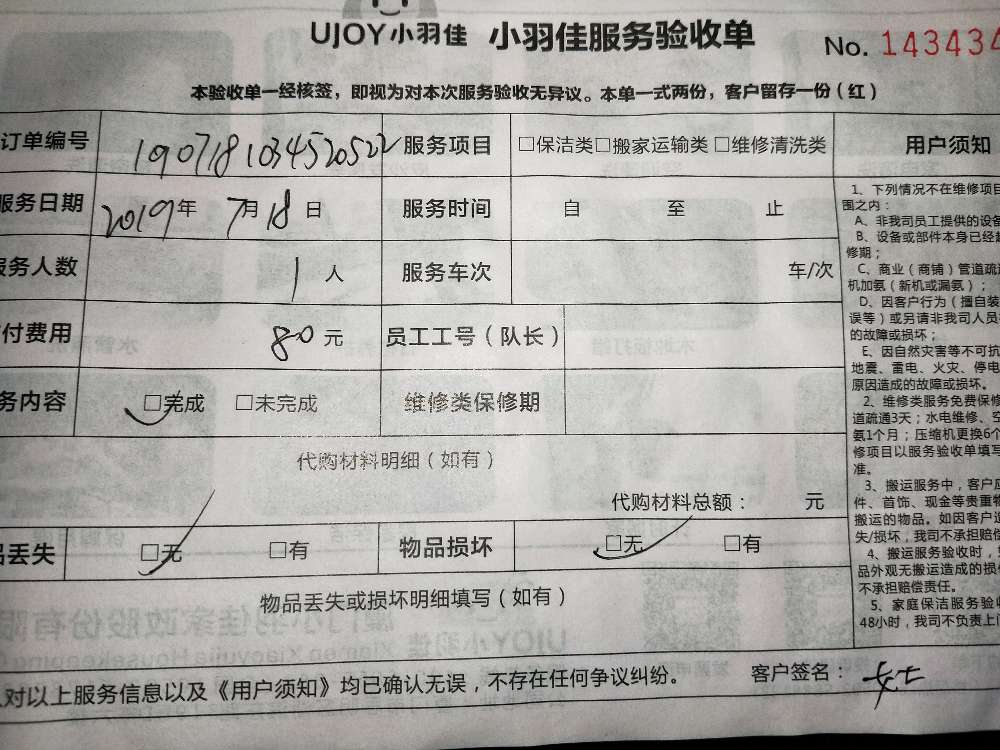 UJOY小羽佳 小羽佳服务验收单 No. 143434
本验收单一经核签，即视为对本次服务验收无异议。本单一式两份，客户留存一份（红）
订单编号 190718103452052 服务项目 □保洁类□搬家运输类 □维修清洗类 用户须知
服务日期 2019年 7月18日 服务时间 自 至 止
务人数 1 人 服务车次 车/次
付费用 80 元 员工工号（队长）
务内容 □完成 □未完成 维修类保修期
代购材料明细（如有）
代购材料总额： 元
品丢失 □无 □有 物品损坏 □无 □有
物品丢失或损坏明细填写（如有）
对以上服务信息以及《用户须知》均已确认无误，不存在任何争议纠纷。 客户签名：
1、下列情况不在维修项目
围之内：
A、非我司员工提供的设备
B、设备或部件本身已经超
修期；
C、商业（商铺）管道疏通
机加氨（新机或漏氨）；
D、因客户行为（擅自装
误等）或另请非我司人员
的故障或损坏；
E、因自然灾害等不可抗
地震、雷电、火灾、停电
原因造成的故障或损坏。
2、维修类服务免费保修
道疏通3天；水电维修、空
氨1个月；压缩机更换6个
修项目以服务验收单填写
准。
3、搬运服务中，客户应
件、首饰、现金等贵重物
搬运的物品。如因客户
失/损坏，我司不承担赔偿
4、搬运服务验收时，
品外观无搬运造成的损
不承担赔偿责任。
5、家庭保洁服务验收
48小时，我司不负责上门